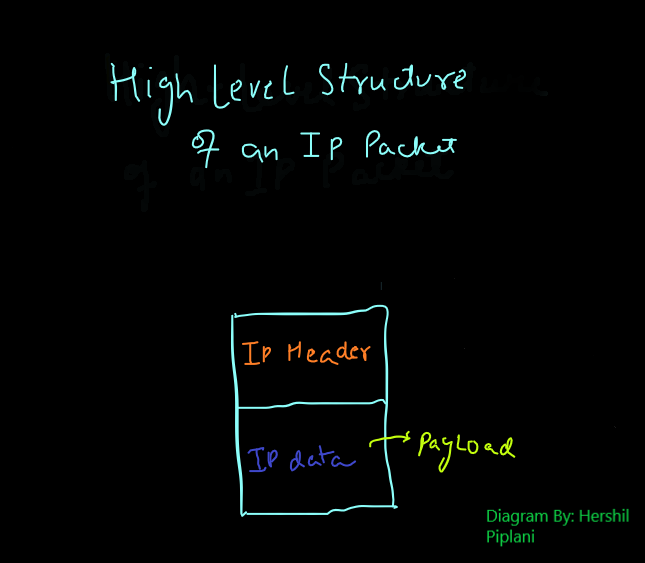 High Level Structure
of an IP Packet
IP Header
IP data
Payload
Diagram By: Hershil
Piplani